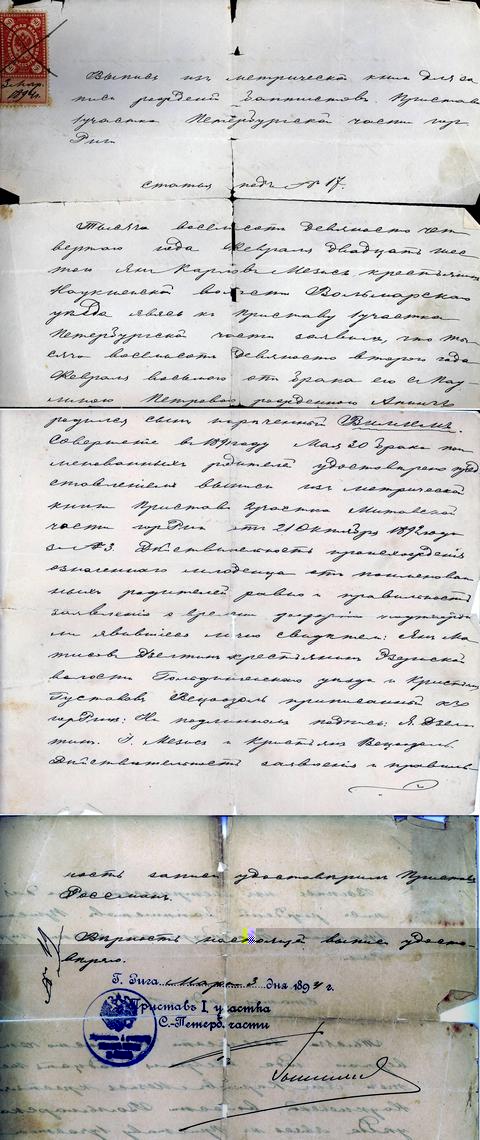 3 Мар.
1894 г.
Выпись изъ метрической книги для за
писи рожденій баптистовъ Пристава
1 участка Петербургской части гор.
Риги
статья подъ № 17.
Тысяча восемьсотъ девяносто чет
вертого года Февраля двадцать шес
того Янъ Карловъ Мезисъ крестьянинъ
волости Вольмарскаго
уѣзда явясь къ Приставу 1 участка
Петербургской части заявилъ, что ты
сяча восемьсотъ девяносто второго года
Февраля восьмого отъ брака его съ
Петровою рожденною
родился сынъ нареченный Вильямъ.
Совершеніе въ 1891 году Мая 30 брака пои
менованныхъ родителей удостовѣрено пред
ставленіемъ выписи изъ метрической
книги Пристава 2 участка Митавской
части гор Риги отъ 21 Октября 1892 года
за № 3. Дѣйствительность происхожденія
означеннаго младенца отъ поименован
ныхъ родителей равно и правильность
заявленія о времени рожденія подтверди
ли явившіеся лично свидѣтели: Янъ Ма
тисовъ Дзелтинъ крестьянинъ
волости уѣзда и Кристапъ
Густавовъ приписанный къ
гор Риги: На подлинномъ подписи: Я. Дзел
тинъ. Я. Мезисъ и Кристапъ
Дѣйствительность заявленія и правиль
ность записи удостовѣрилъ Приставъ
Россманъ.
Вѣрность настоящей выписи удосто-
вѣряю.
№ 19
Г. Рига Марта 3 дня 1894 г.
Приставъ I участка
С.-Петерб. части